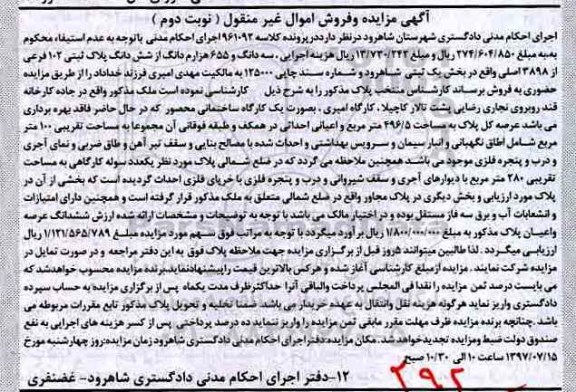 آگهی مزایده وفروش اموال غیر منقول ( نوبت دوم )
اجرای احکام مدنی دادگستری شهرستان شاهرود درنظر دارددرپرونده کلاسه ۹۶۱۰۹۲اجرای احکام مدنی باتوجه به عدم استیفاء محکوم
به‌به مبلغ ۲۷۴/۶۰۴/۸۵۰ ریال و مبلغ ۱۳/۷۳۰/۲۴۲ ریال هزینه اجرایی ، سه دانگ و ۶۵۵ هزارم دانگ از شش دانگ پلاک ثبتی ۱۰۲ فرعی
از ۳۸۹۸ اصلی واقع در بخش یک ثبتی شاهرود و شماره سند چاپی ۱۲۵۰۰۰ به مالکیت مهدی امیری فرزند خداداد را از طریق مزایده
حضوری به فروش برساند کارشناس منتخب پلاک مذکور را به شرح ذیل کارشناسی نموده است ملک مذکور واقع در جاده کارخانه
قند روبروی نجاری رضایی پشت تالار کاچیلا ، کارگاه امیری ، بصورت یک کارگاه ساختمانی محصور که در حال حاضر فاقد بهره برداری
می باشد عرصه کل پلاک به مساحت ۲۹۶/۵ متر مربع و اعیانی احداثی در همکف و طبقه فوقانی آن مجموعا به مساحت تقریبی ۱۰۰ متر
مربع شامل اطاق نگهبانی و انبار سیمان و سرویس بهداشتی و احداث شده با مصالح بنایی و سقف تیر آهن و طاق ضربی و نمای آجری
و درب و پنجره فلزی موجود می باشد. همچنین ملاحظه می گردد که در ضلع شمالی پلاک مورد نظر یکعدد سوله کارگاهی به مساحت
تقریبی ۲۸۰ متر مربع با دیوارهای آجری و سقف شیروانی و درب و پنجره فلزی با خرپای فلزی احداث گردیده است که بخشی از آن در
پلاک مورد ارزیابی و بخش دیگری در پلاک مجاور واقع در ضلع شمالی متعلق به ملک مذکور قرار گرفته است و همچنین دارای امتیازات
و انشعابات آب و برق سه فاز مستقل بوده و در اختیار مالک می باشد با توجه به توضیحات و مشخصات ارائه شده ارزش ششدانگ عرصه
واعیان پلاک مذکور به ۱/۸۰۰/۰۰۰/۰۰۰ ریال بر آورد میگردد با توجه به مراتب فوق سهم مورد مزایده مبلغ ۱/۱۲۱/۵۶۵/۷۸۹ ریال
ارزیابی میگردد . لذا طالبین میتوانند ۵روز قبل از برگزاری مزایده جهت ملاحظه پلاک فوق به این دفتر مراجعه و در صورت تمایل در
مزایده شرکت نمایند . مزایده ازمبلغ کارشناسی آغاز شده و هرکس بالاترین قیمت راپیشنهادنمایدبرنده مزایده محسوب خواهدشد که
می بایست درصد ثمن مزایده را نقدا فی المجلس پرداخت والباقی آنرا حداکثرظرف مدت یکماه پس از برگزاری مزایده به حساب سپرده
دادگستری واریز نماید هرگونه هزینه نقل وانتقال به عهده خریدار می باشد ضمنا تخلیه و تحویل پلاک مذکور تابع مقررات مربوطه می
باشد. چنانچه برنده مزایده ظرف مهلت مقرر مابقی ثمن مزایده را واریز ننماید ده درصد پرداختی پس از کسر هزینه های اجرایی به نفع
صندوق دولت ضبط ومزایده تجدیدخواهد شد. مکان مزایده:دفتر اجرای احکام مدنی دادگستری شاهرود زمان مزایده:روز چهارشنبه مورخ
۱۳۹۷/۰۷/۱۵ ساعت ۱۰ الی ۱۰/۳۰ صبح
۱۲-دفتر اجرای احکام مدنی دادگستری شاهرود- غضنفری